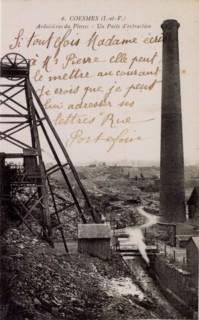 6. COESMES (I.-et-V.)
Ardoisières du Plessis - Un Puits d'extraction
Si toutefois Madame écrit
à Mr Pierre elle peut
le mettre au courant
Je crois que je peux
lui adresser ses
lettres Rue